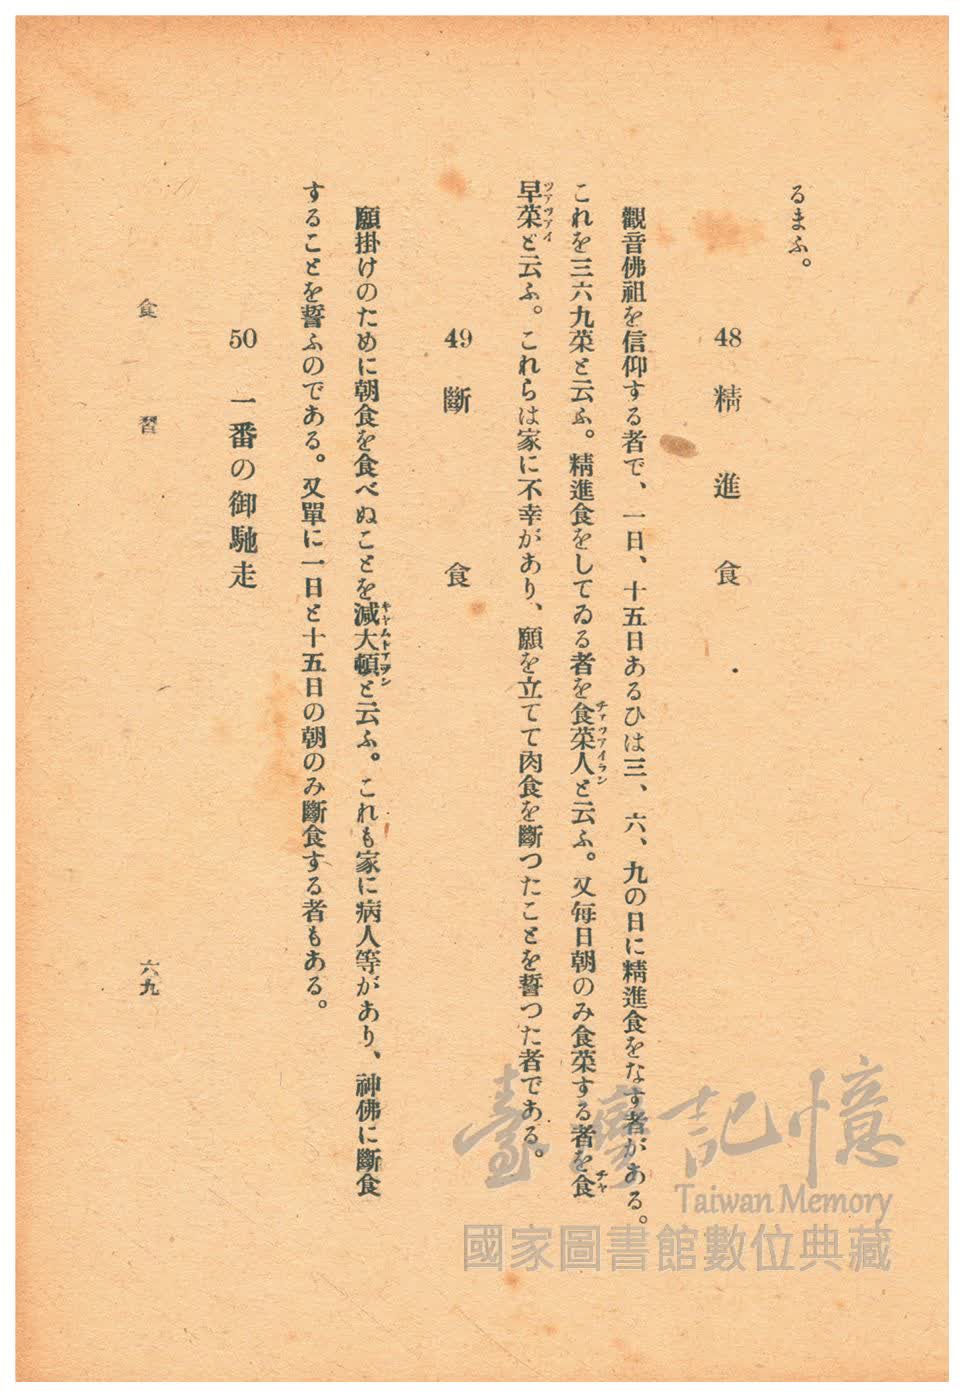 るまふ。
48 精進食
觀音佛祖を信仰する者で、一日、十五日あるひは三、六、九の日に精進食をなす者がある。
これを三六九菜と云ふ。精進食をしてゐる者を食菜人と云ふ。又每日朝のみ食菜する者を食
チアツアイラン
チヤ
早菜と云ふ。これらは家に不幸があり、願を立てて肉食を斷つたことを誓つた者である。
ツアツアイ
49 斷食
願掛けのために朝食を食べぬことを減大頓と云ふ。これも家に病人等があり、神佛に斷食
キヤムトアツン
することを誓ふのである。又單に一日と十五日の朝のみ斷食する者もある。
50 一番の御馳走
食習
六九
臺灣記憶
Taiwan Memory
國家圖書館數位典藏